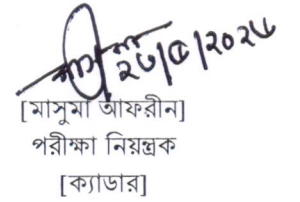 ২৬/৫/২০২৬
[মাসুমা আফরীন]
পরীক্ষা নিয়ন্ত্রক
[ক্যাডার]